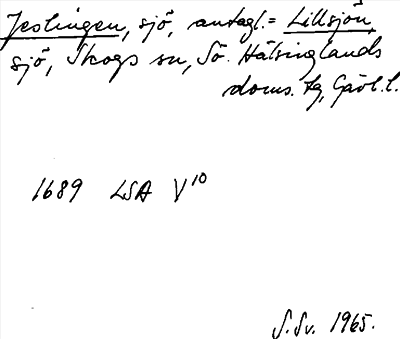 Jeslingen, sjö, antagl. = Lillsjön,
sjö, Skogs sn, Sö. Hälsinglands
doms. tg, Gävl. l.
1689 LSA V10
S. Sv. 1965.